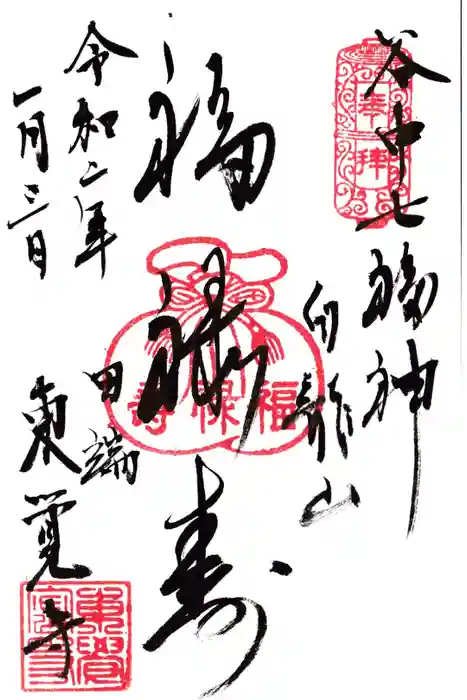 谷中七福神
奉拝
白龍山
福禄寿
福禄寿
令和二年
一月三日
田端
東覚寺
東覺寺印